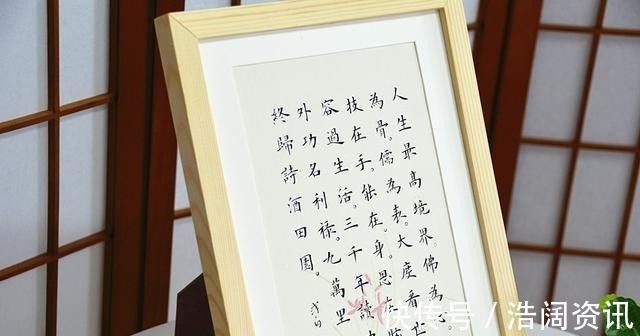 人生最高境界。佛為
為骨。儒為表。大度看
技在手。能在身。思在
容過生活。三千年讀
外功名利祿。九萬里
終歸詩酒田園。
快传号 / 浩阔资讯